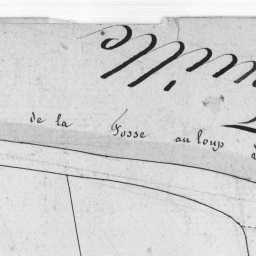 ille
de la Fosse au loup